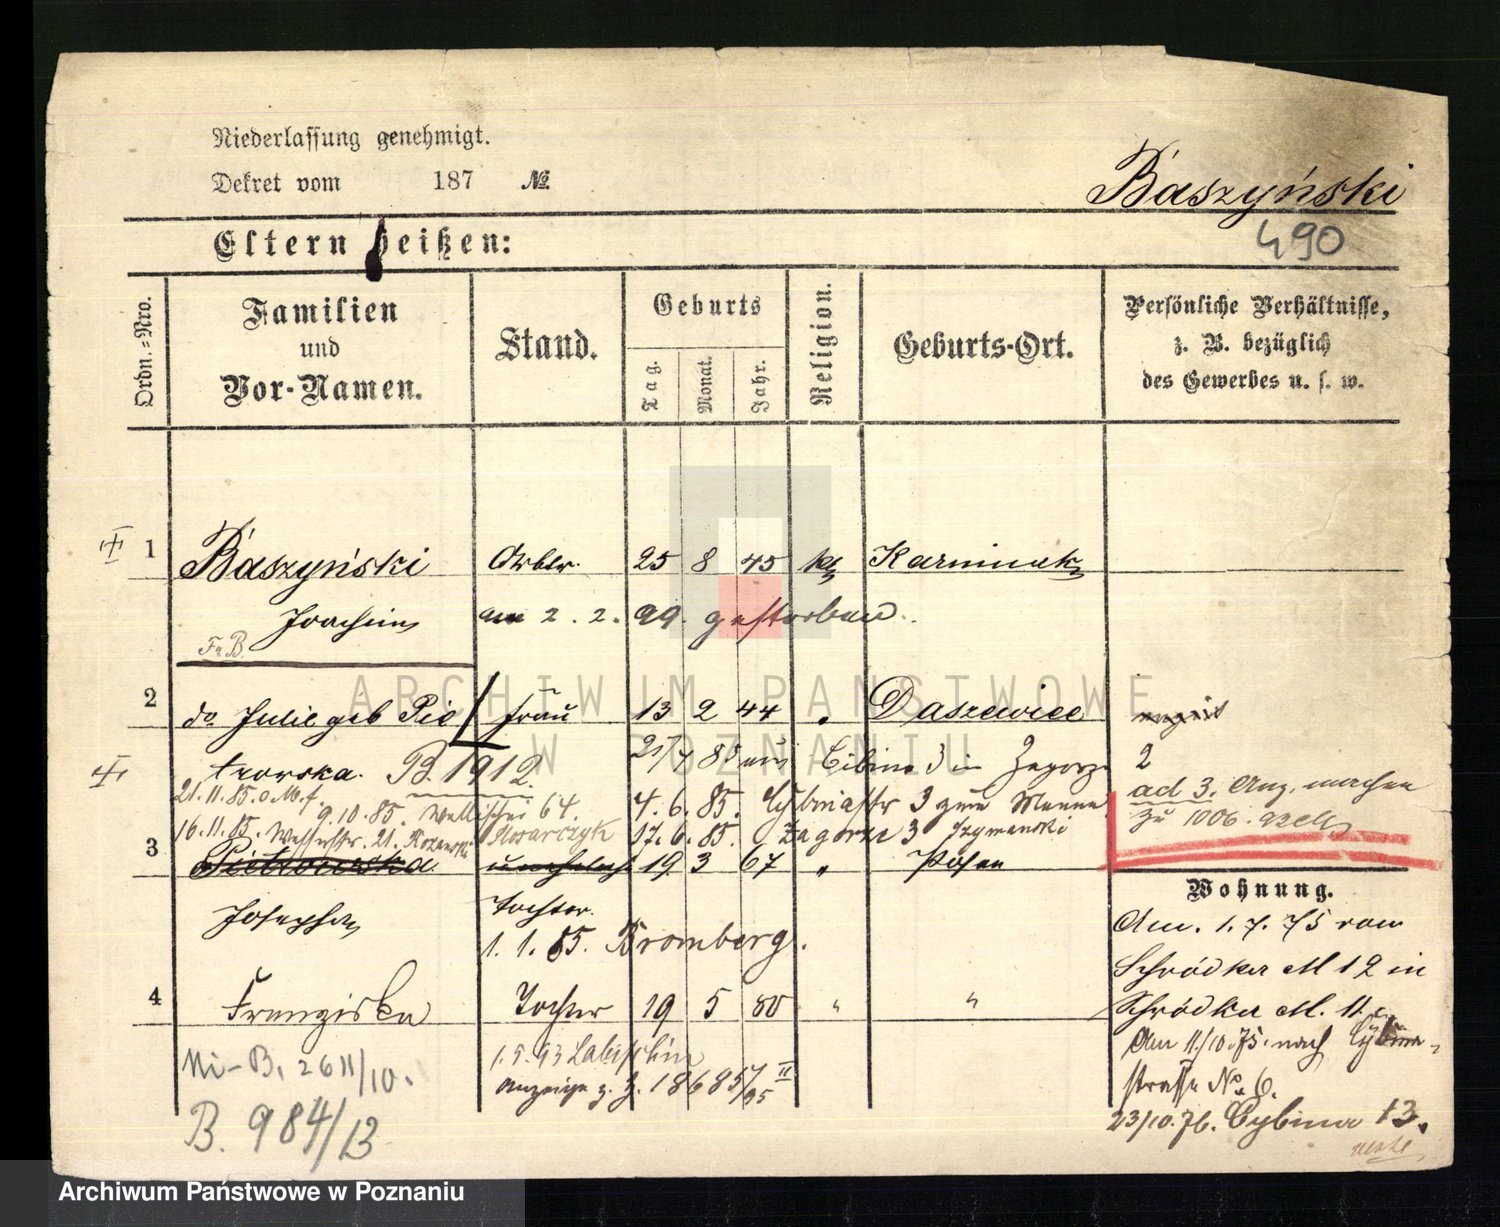 Niederlassung genehmigt.
Dekret vom 187 №
Baszyński
490
Eltern heißen:
Ordn.-Nro.
Familien
und
Vor-Namen.
Stand.
Geburts
Tag.
Monat.
Jahr.
Religion.
Geburts-Ort.
Persönliche Verhältnisse,
z. B. bezüglich
des Gewerbes u. s. w.
1 Baszyński Arbtr. 25 8 45 kth
Joachim am 2. 2. 99. gestorben.
F. B.
ARCHIWUM PAŃSTWOWE
W POZNANIU
2 do Julie geb Pie Frau 13 2 44 " Daszewice
trowska. B. 1912. 2
ad 3. Anz. machen
21.11.85. 9.10.85. Wallischei 64. 4. 6. 85. 3
zu 1006.
16.11.85. 21. 17. 6. 85. Zagorze 3 Szymanski
3 Pietrowska 19 3 67 " Posen
Josepha Tochter.
1. 1. 85. Bromberg.
4 Franziska Tochter 19 5 80 " "
1.5.93 Labischin
Anzeige z. J. 18685/95 II
Ni-B. 2611/10.
B. 984/13
Wohnung.
Am. 1. 7. 75 von
Schrodka N 12 in
Schrodka N. 11.
Am 11/10.75. nach Cybina-
straße No. 6.
23/10.76. Cybina 13.
Archiwum Państwowe w Poznaniu